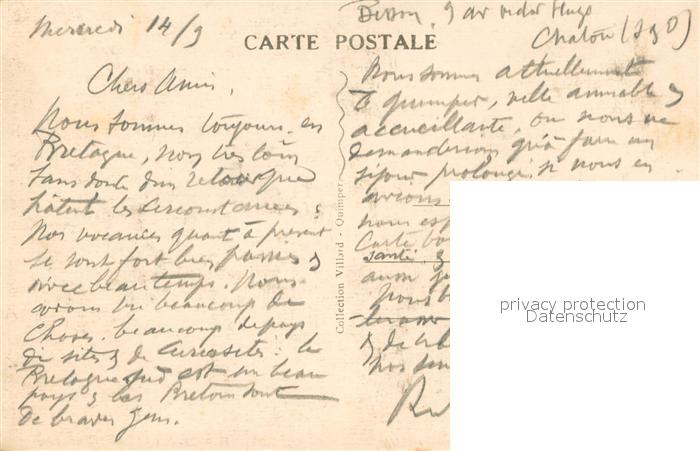 Mercredi 14/9
CARTE POSTALE
9 av victor Hugo
Chatou (S & O)
Chers Amis,
Nous sommes toujours en
Bretagne, non très loin
sans doute d'un retour que
hâtent les circonstances ;
Nos vacances quant à présent
se sont fort bien passées &
avec beau temps. Nous
avons vu beaucoup de
choses. beaucoup de pays
de sites & de curiosités : la
Bretagne sud est un beau
pays & les Bretons sont
de braves gens.
Collection Villard - Quimper
Nous sommes actuellement
à Quimper, ville aimable &
accueillante, où nous ne
demanderions qu'à faire un
séjour prolongé si nous en
avions
nous esp
Carte
santé, &
aussi
Nous
& de
nos
privacy protection
Datenschutz